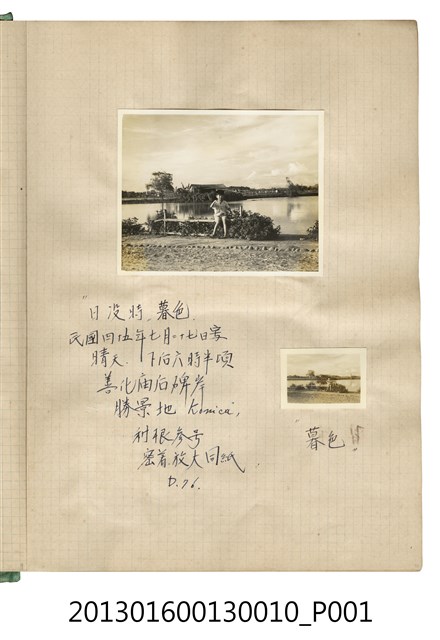 "日没時、暮色、
民國四五年七月二七日寫
晴天、下后六時半頃
善化庙后埤岸
勝景地 'Konica',
衬根参号
密着、放大同紙、
D.76.
"暮色"
201301600130010_P001